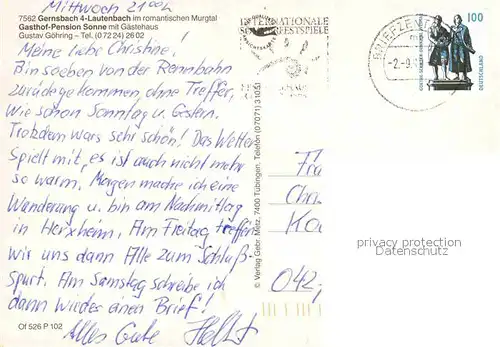 Mittwoch 21ooh
7562 Gernsbach 4-Lautenbach im romantischen Murgtal
Gasthof-Pension Sonne mit Gästehaus
Gustav Göhring – Tel. (0 72 24) 26 02
Meine liebe Christine!
Bin soeben von der Rennbahn
zurückgekommen ohne Treffer,
wie schon Sonntag u. Gestern.
Trotzdem wars sehr schön! Das Wetter
spielt mit, es ist auch nicht mehr
so warm. Morgen mache ich eine
Wanderung u. bin am Nachmittag
in Herxheim. Am Freitag treffen
wir uns dann Alle zum Schluß-
spurt. Am Samstag schreibe ich
dann wieder einen Brief!
Alles Gute
Of 526 P 102
© Verlag Gebr. Metz, 7400 Tübingen, Telefon (07071) 31051
INTERNATIONALE
100
DEUTSCHLAND
Chri
042
privacy protection
Datenschutz